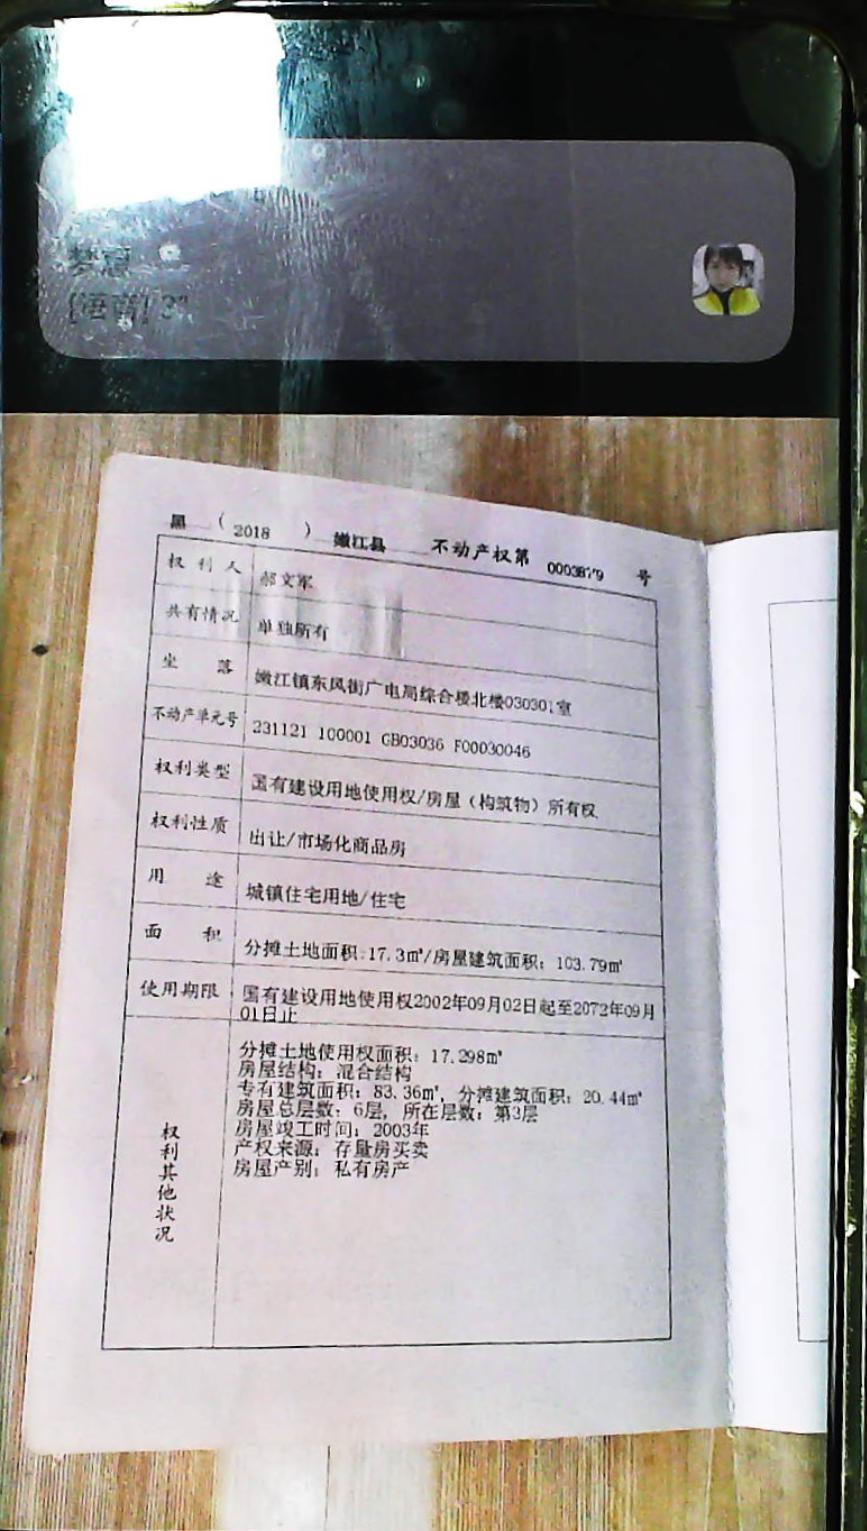 [语音] 3"
黑 ( 2018 ) 嫩江县 不动产权第 0003879 号
权利人 郝文军
共有情况 单独所有
坐落 嫩江镇东风街广电局综合楼北楼030301室
不动产单元号 231121 100001 GB03036 F00030046
权利类型 国有建设用地使用权/房屋（构筑物）所有权
权利性质 出让/市场化商品房
用途 城镇住宅用地/住宅
面积 分摊土地面积:17.3㎡/房屋建筑面积：103.79㎡
使用期限 国有建设用地使用权2002年09月02日起至2072年09月
01日止
权利其他状况
分摊土地使用权面积：17.298㎡
房屋结构：混合结构
专有建筑面积：83.36㎡，分摊建筑面积：20.44㎡
房屋总层数：6层，所在层数：第3层
房屋竣工时间：2003年
产权来源：存量房买卖
房屋产别：私有房产